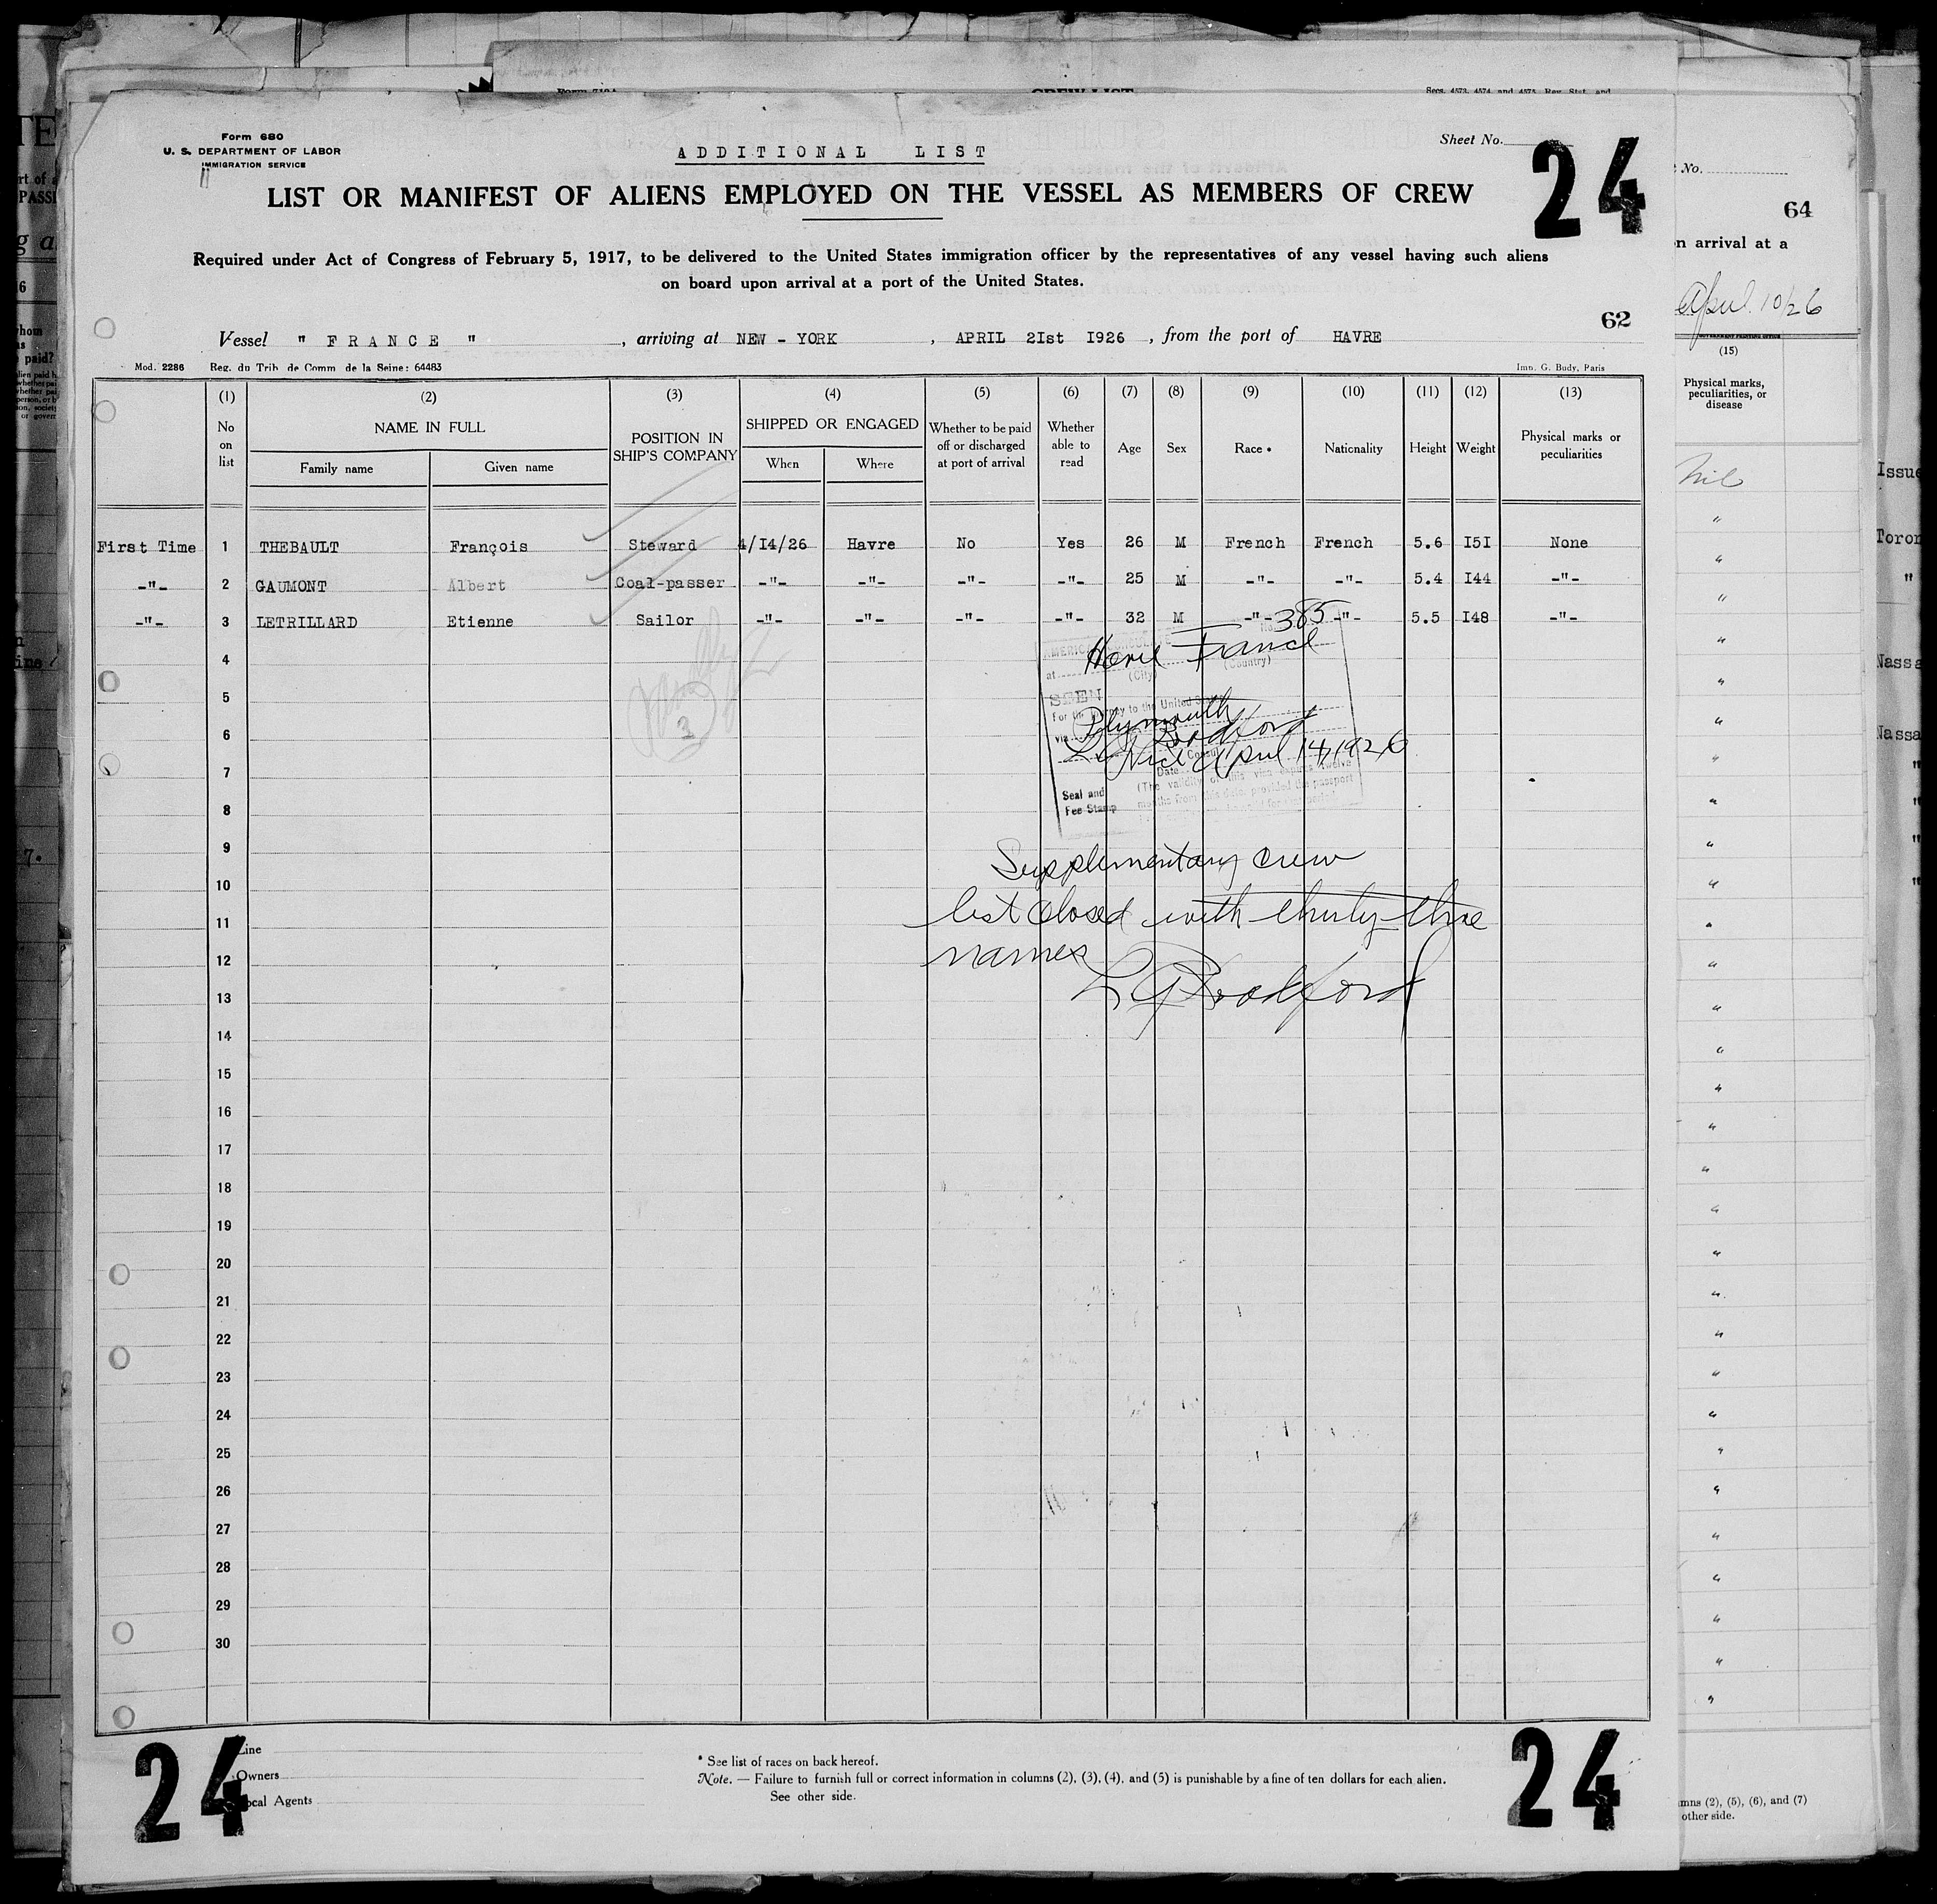 Form 680
U. S. DEPARTMENT OF LABOR
IMMIGRATION SERVICE
ADDITIONAL LIST
Sheet No.
24
LIST OR MANIFEST OF ALIENS EMPLOYED ON THE VESSEL AS MEMBERS OF CREW
Required under Act of Congress of February 5, 1917, to be delivered to the United States immigration officer by the representatives of any vessel having such aliens
on board upon arrival at a port of the United States.
62
Vessel " FRANCE " , arriving at NEW - YORK , APRIL 2Ist I926 , from the port of HAVRE
Mod. 2286 Reg. du Trib. de Comm. de la Seine: 64483 Imp. G. Budy, Paris
(1) (2) (3) (4) (5) (6) (7) (8) (9) (10) (11) (12) (13)
No on list NAME IN FULL Family name Given name POSITION IN SHIP'S COMPANY SHIPPED OR ENGAGED When Where Whether to be paid off or discharged at port of arrival Whether able to read Age Sex Race * Nationality Height Weight Physical marks or peculiarities
First Time 1 THEBAULT François Steward 4/I4/26 Havre No Yes 26 M French French 5.6 I5I None
-"- 2 GAUMONT Albert Coal-passer -"- -"- -"- -"- 25 M -"- -"- 5.4 I44 -"-
-"- 3 LETRILLARD Etienne Sailor -"- -"- -"- -"- 32 M -"- -"- 5.5 I48 -"-
385
4
at Havre France
(City) (Country)
5
SEEN
For the journey to the United States
via Plymouth
6
L G Bradford
3
Vice Consul
April 14, 1926
7
Date
(The validity of this visa expires twelve
months from this date provided the passport
Seal and
Fee Stamp
8
9
Supplementary crew
10
list closed with thirty-three
11
names
12
L G Bradford
13
14
15
16
17
18
19
20
21
22
23
24
25
26
27
28
29
30
24
Line
Owners
Local Agents
* See list of races on back hereof.
Note. — Failure to furnish full or correct information in columns (2), (3), (4), and (5) is punishable by a fine of ten dollars for each alien.
See other side.
24
No.
64
n arrival at a
April 10/26
(15)
Physical marks,
peculiarities, or
disease
Nil
mns (2), (5), (6), and (7)
other side.
Issue
Toron
Nassa
Nassa